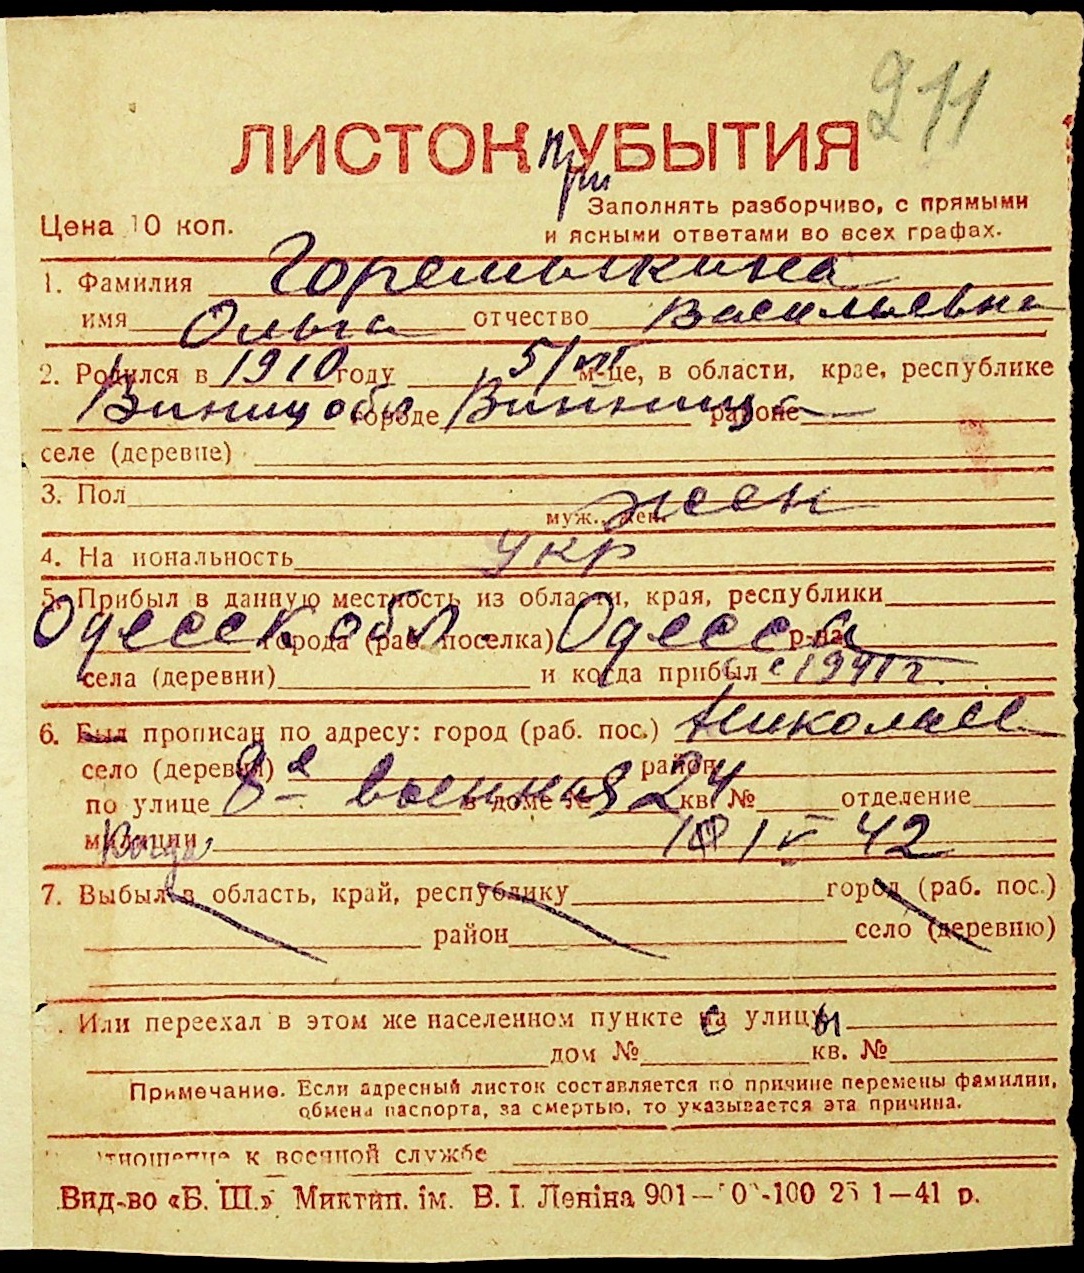 211
ЛИСТОК при УБЫТИЯ
Цена 10 коп.
Заполнять разборчиво, с прямыми
и ясными ответами во всех графах.
1. Фамилия Горемыкина
имя Ольга отчество Васильевна
2. Родился в 1910 году 5/VII м-це, в области, крае, республике
Виницобл городе Винница районе
селе (деревне)
3. Пол жен
муж., жен.
4. На иональность укр
5. Прибыл в данную местность из области, края, республики
Одесск обл. города (раб. поселка) Одесса р-на
села (деревни) и когда прибыл с 1941 г.
6. Был прописан по адресу: город (раб. пос.) Николаев
село (деревня) район
по улице 8а военная в доме № 24 кв. № отделение
милиции Когда 10 IV 42
7. Выбыл в область, край, республику город (раб. пос.)
район село (деревню)
. Или переехал в этом же населенном пункте с улицы
дом № кв. №
Примечание. Если адресный листок составляется по причине перемены фамилии,
обмена паспорта, за смертью, то указывается эта причина.
тношение к военной службе
Вид-во «Б. Ш.» Миктип. ім. В. І. Леніна 901— 0 -100 25 1—41 р.